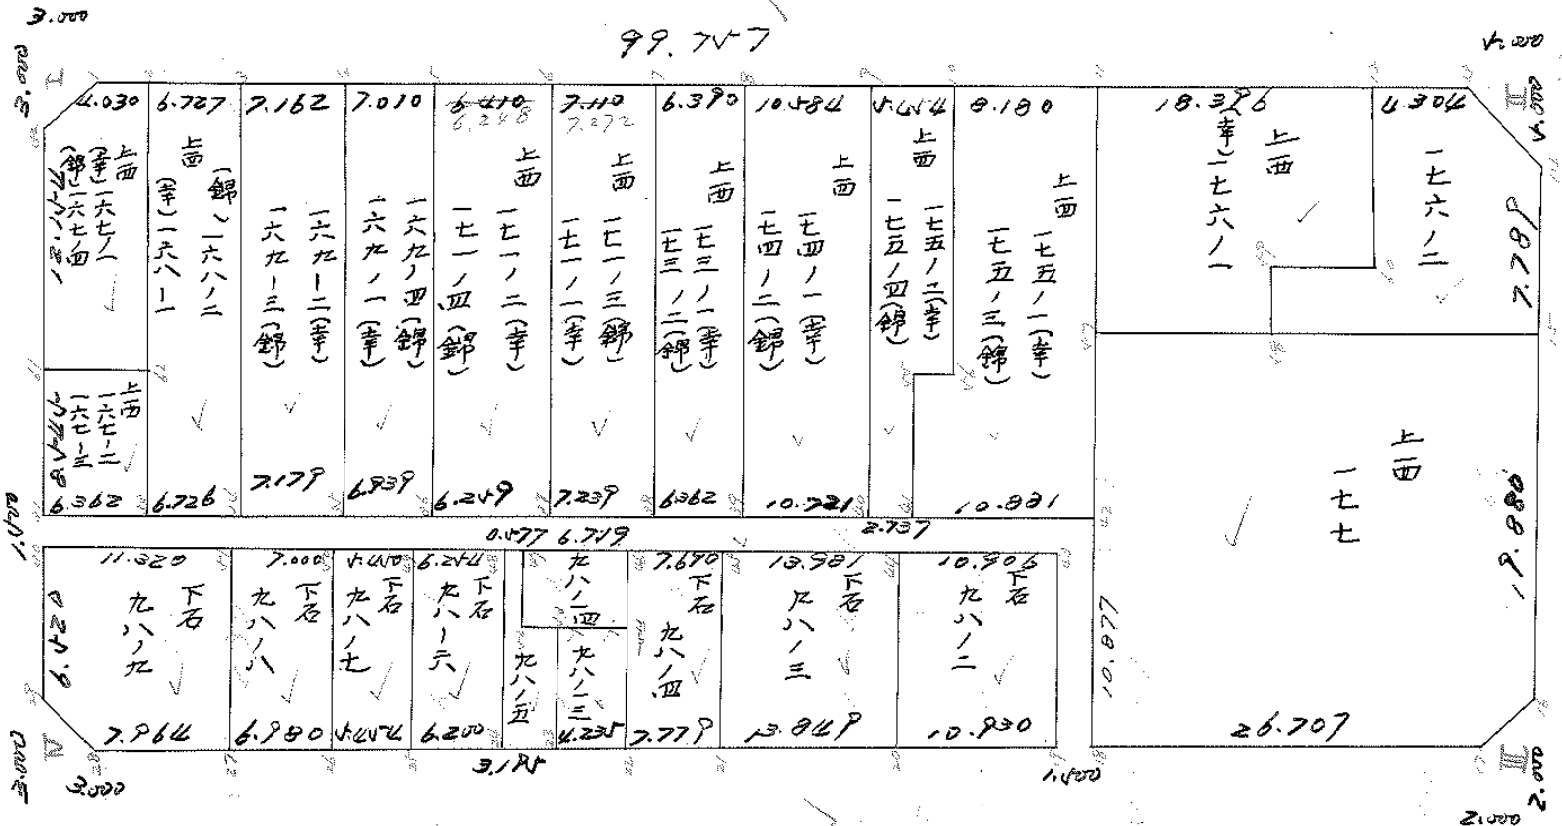 3.000
99.757
5.000
3.000
I
4.030
6.727
7.162
7.010
6.410
6.248
7.110
7.272
6.390
10.584
5.454
8.180
18.396
4.304
II
5.000
上西
(幸)一六七ノ一
(錦)一六七ノ四
上西
(錦)一六八ノ二
(幸)一六八ー一
一六九ー二(幸)
一六九ー三(錦)
一六九ノ四(錦)
一六九ノ一(幸)
上西
一七一ノ二(幸)
一七一ノ四(錦)
上西
一七一ノ三(錦)
一七一ノ一(幸)
上西
一七三ノ一(幸)
一七三ノ二(錦)
上西
一七四ノ一(幸)
一七四ノ二(錦)
上西
一七五ノ二(幸)
一七五ノ四(錦)
上西
一七五ノ一(幸)
一七五ノ三(錦)
上西
(幸)一七六ノ一
一七六ノ二
7.789
上西
一六七ー二
一六七ー三
6.362
6.726
7.179
6.939
6.249
7.239
6.362
10.721
10.881
上西
一七七
19.880
0.577
6.719
2.737
11.320
7.000
5.450
6.254
7.690
13.981
10.906
下石
九八ノ九
下石
九八ノ八
下石
九八ノ七
下石
九八ー六
九八ノ五
九八ノ一四
九八ノ一三
下石
九八ノ四
下石
九八ノ三
下石
九八ノ二
9.520
10.877
7.964
6.980
5.454
6.200
4.235
7.779
13.849
10.930
26.707
IV
3.000
3.000
3.195
1.500
III
2.000
2.000